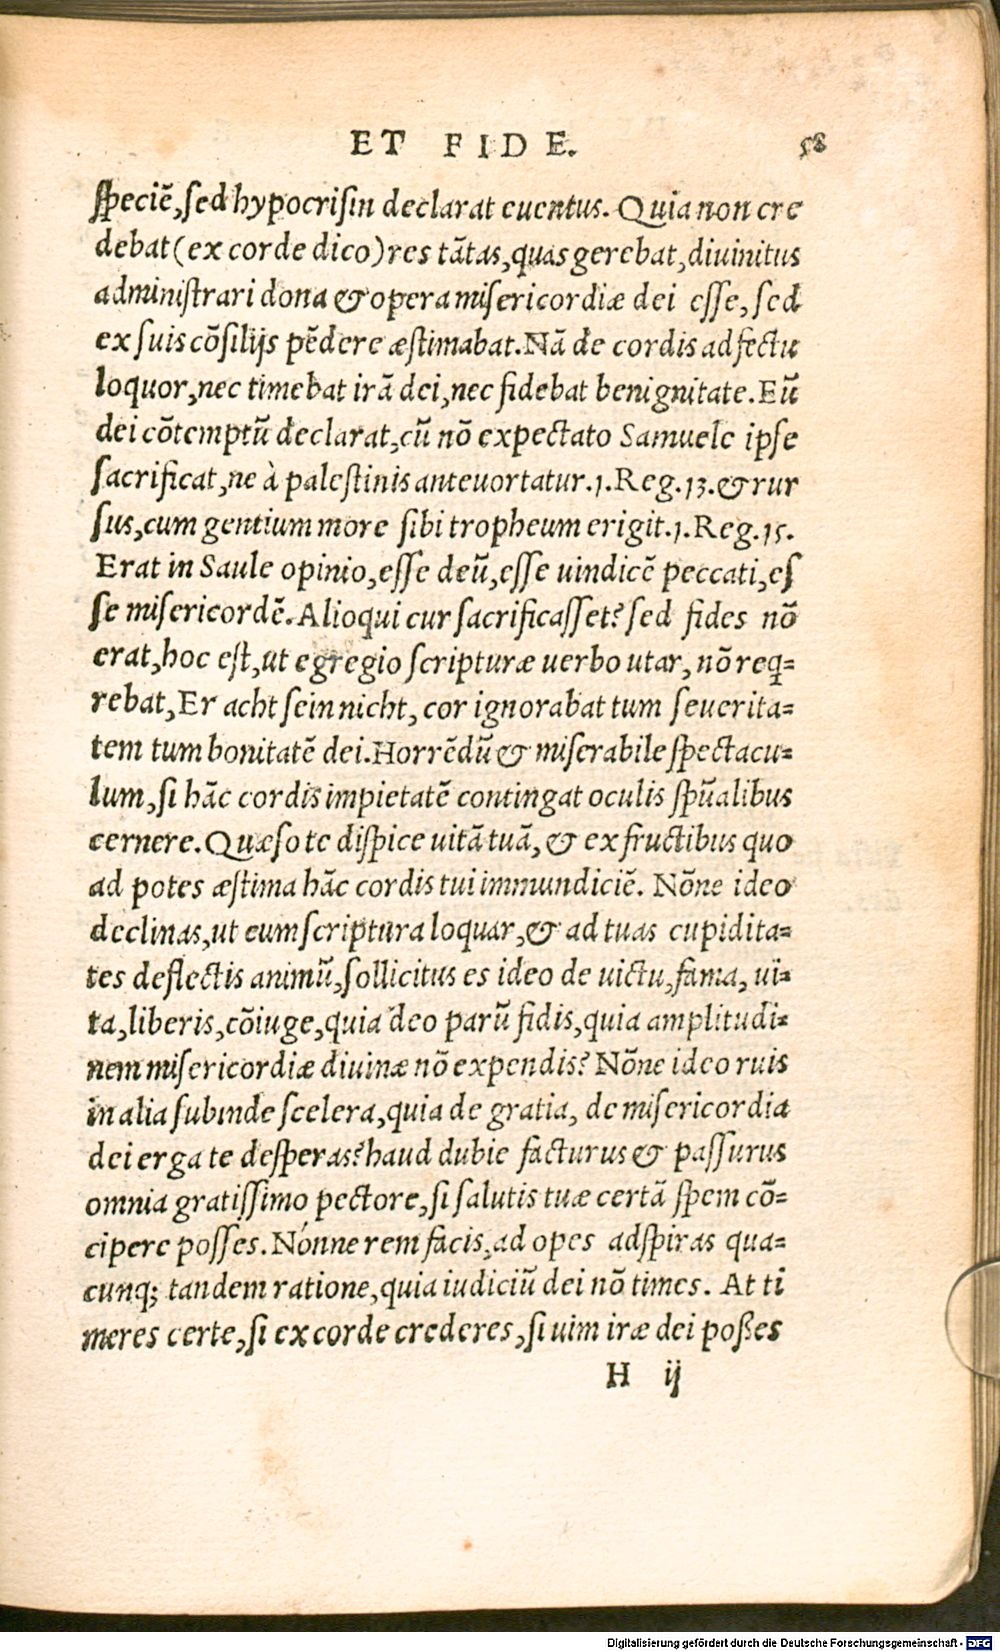 ET FIDE. 58
ſpeciē, ſed hypocriſin declarat euentus. Quia non cre
debat (ex corde dico) res tātas, quas gerebat, diuinitus
adminiſtrari dona & opera miſericordiæ dei eſſe, ſed
ex ſuis cōſilijs pēdere æſtimabat. Nā de cordis adfectu
loquor, nec timebat irā dei, nec fidebat benignitate. Eū
dei cōtemptū declarat, cū nō expectato Samuele ipſe
ſacrificat, ne à paleſtinis anteuortatur. 1. Reg. 13. & rur
ſus, cum gentium more ſibi tropheum erigit. 1. Reg. 15.
Erat in Saule opinio, eſſe deū, eſſe uindicē peccati, eſ
ſe miſericordē. Alioqui cur ſacrificaſſet? ſed fides nō
erat, hoc eſt, ut egregio ſcripturæ uerbo utar, nō req̄=
rebat, Er acht ſein nicht, cor ignorabat tum ſeuerita=
tem tum bonitatē dei. Horrēdū & miſerabile ſpectacu=
lum, ſi hāc cordis impietatē contingat oculis ſpūalibus
cernere. Quæſo te diſpice uitā tuā, & ex fructibus quo
ad potes æſtima hāc cordis tui immundiciē. Nōne ideo
declinas, ut cum ſcriptura loquar, & ad tuas cupidita=
tes deflectis animū, ſollicitus es ideo de uictu, fama, ui=
ta, liberis, cōiuge, quia deo parū fidis, quia amplitudi=
nem miſericordiæ diuinæ nō expendis? Nōne ideo ruis
in alia ſubinde ſcelera, quia de gratia, de miſericordia
dei erga te deſperas? haud dubie facturus & paſſurus
omnia gratiſſimo pectore, ſi ſalutis tuæ certā ſpem cō=
cipere poſſes. Nónne rem facis, ad opes adſpiras qua=
cunq; tandem ratione, quia iudiciū dei nō times. At ti
meres certe, ſi ex corde crederes, ſi uim iræ dei poßes
H ij
Digitalisierung gefördert durch die Deutsche Forschungsgemeinschaft - DFG